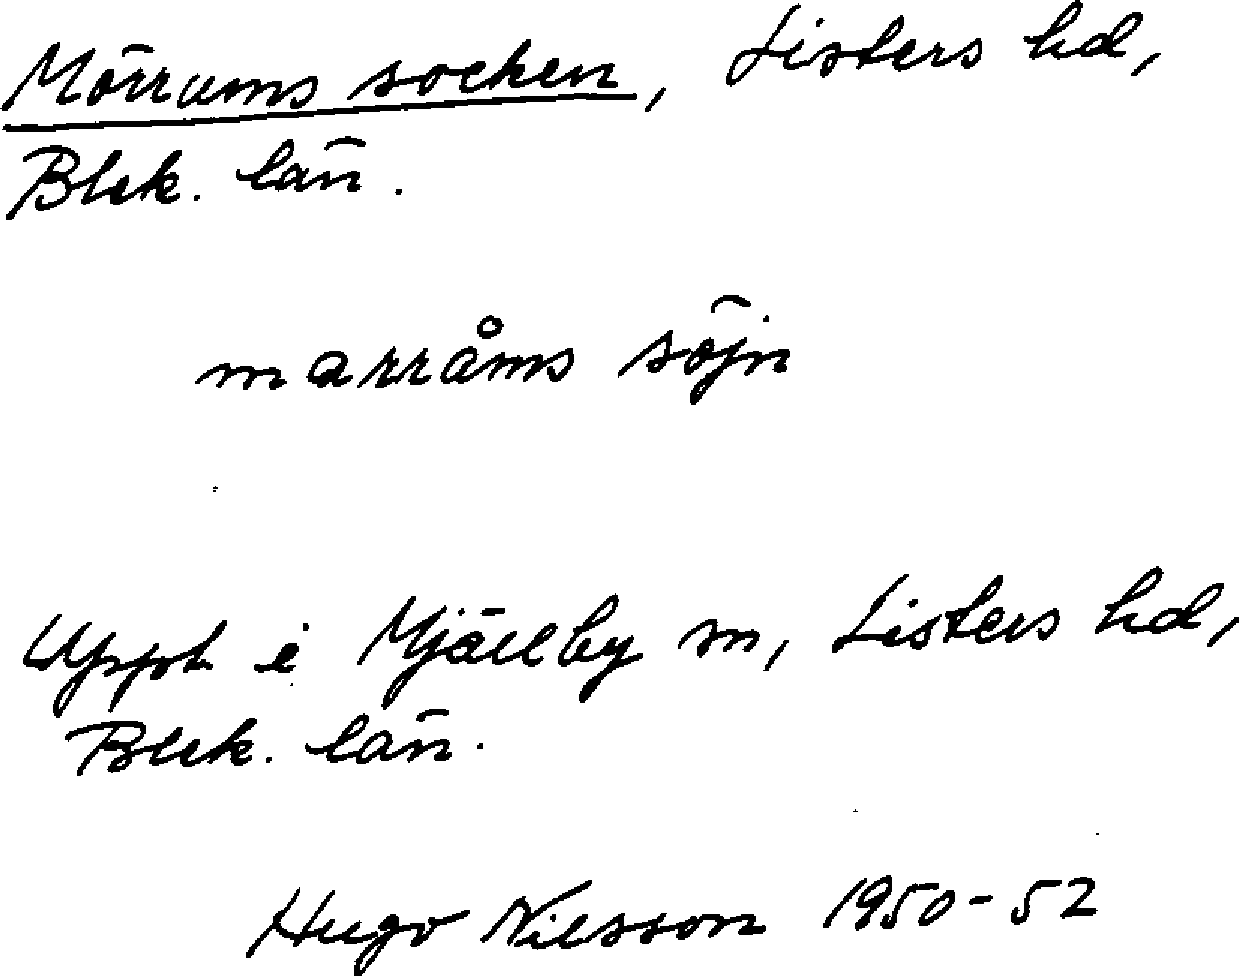 Mörrums socken, Listers hd,
Blek. län.
marråms söjn
Uppt i Mjällby sn, Listers hd,
Blek. län.
Hugo Nilsson 1950-52